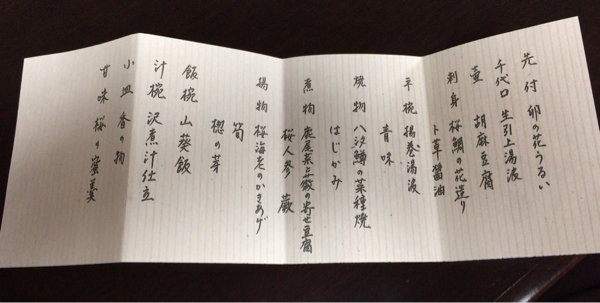 先付 卯の花うるい
千代口 生引上湯波
壷 胡麻豆腐
刺身 桜鯛の花造り
ト草醤油
平椀 揚巻湯波
青味
焼物 八汐鱒の菜種焼
はじかみ
煮物 鹿尾菜と薇の寄せ豆腐
桜人参 蕨
揚物 桜海老のかきあげ
筍
楤の芽
飯椀 山葵飯
汁椀 沢煮汁仕立
小皿 香の物
甘味 桜の蜜羹